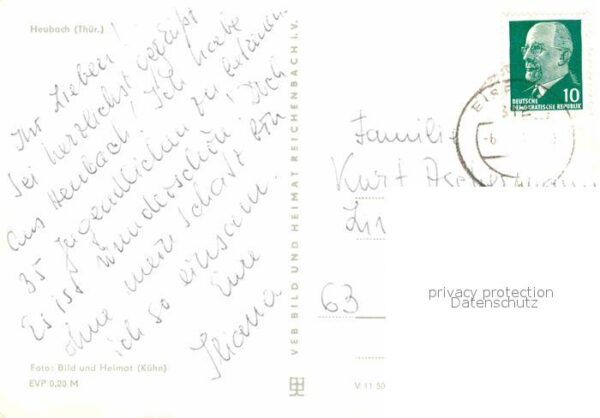 Heubach (Thür.)
Ihr Lieben!
Sei herzlichst gegrüßt
aus Heubach! Ich habe
35 Jugendlichen zu betreuen.
Es ist wunderschön! Doch
ohne mein Schatz bin
ich so einsam.
Eure
Foto: Bild und Heimat (Kühn)
EVP 0,20 M
VEB BILD UND HEIMAT REICHENBACH I.V.
V 11 50
10
DEUTSCHE
DEMOKRATISCHE REPUBLIK
Familie
Kurt
63
privacy protection
Datenschutz